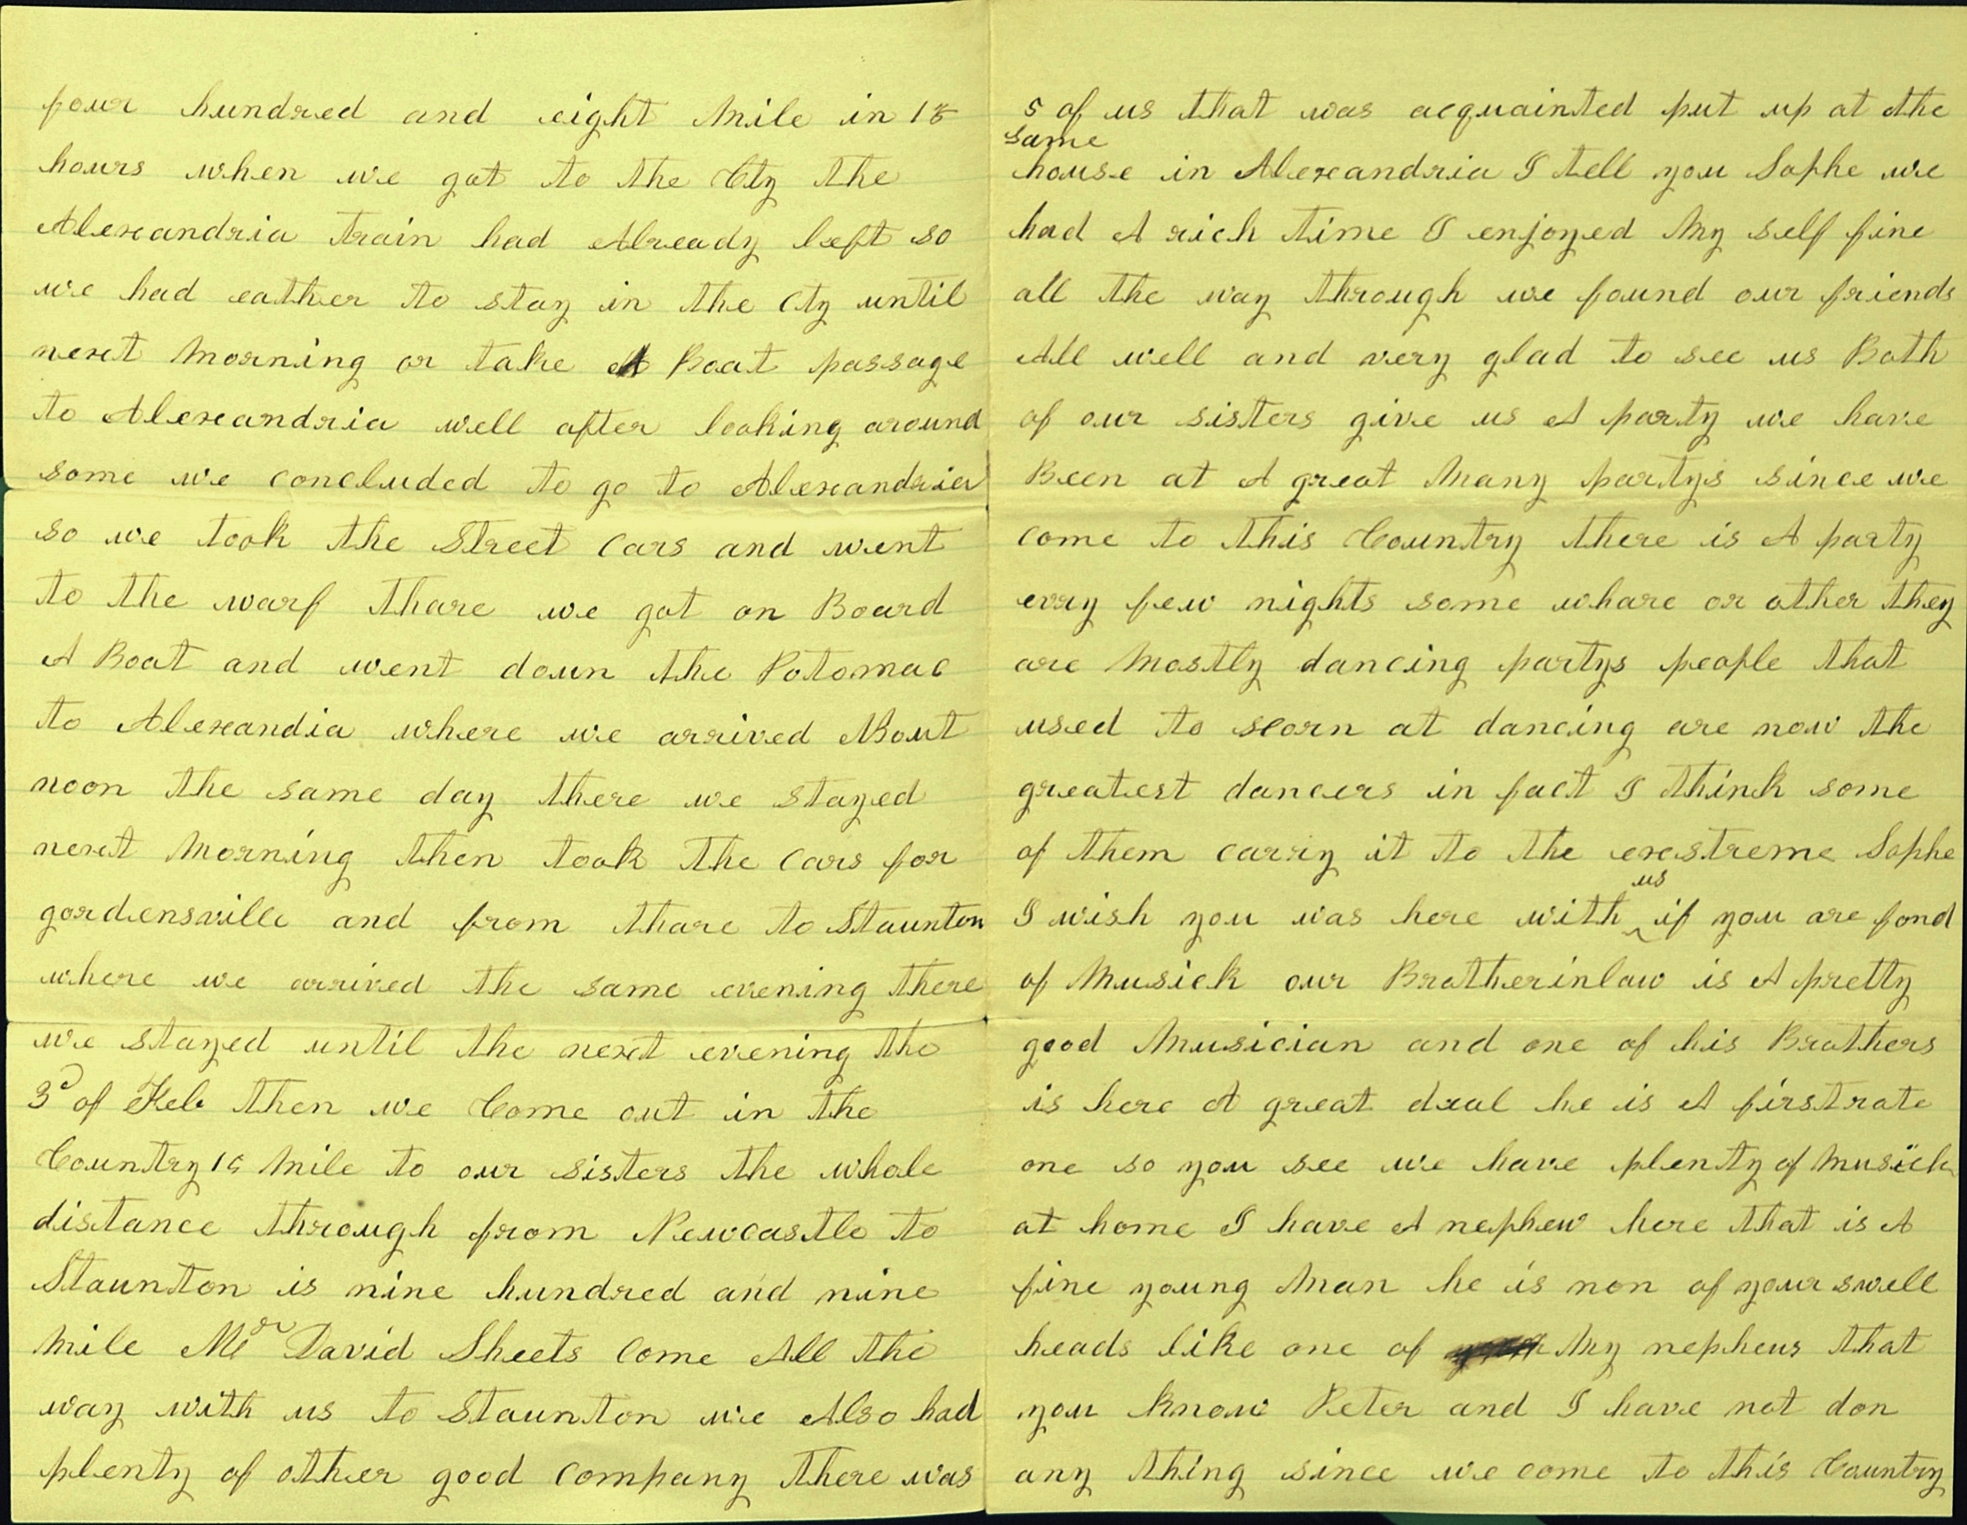 four hundred and eight Mile in 18
hours when we got to the Cty the
Alexandria train had Already left so
we had eather to stay in the cty until
next Morning or take A Boat passage
to Alexandria well after looking around
some we concluded to go to Alexandria
so we took the Street Cars and went
to the warf thare we got on Board
A Boat and went doun the Potomac
to Alexandia where we arrived About
noon the same day there we stayed
next Morning then took the Cars for
gordensville and from thare to Staunton
where we arrived the same evening there
we stayed until the next evening the
3d of Feb then we Come out in the
Country 15 Mile to our sisters the whole
distance through from Newcastle to
Staunton is nine hundred and nine
Mile Mr David Sheets Come All the
way with us to Staunton we Also had
plenty of other good Company there was
5 of us that was acquainted put up at the
same
house in Alexandria I tell you Sophe we
had A rich time I enjoyed My self fine
all the way through we found our friends
All well and very glad to see us Both
of our sisters give us A party we have
Been at A great Many partys since we
come to this Country there is A party
evry few nights some whare or other they
are Mostly dancing partys people that
used to scorn at dancing are now the
greatest dancers in fact I think some
of them carry it to the exstreme Sophe
I wish you was here with us if you are fond
of Musick our Brotherinlaw is A pretty
good Musician and one of his Brothers
is here A great deal he is A firstrate
one so you see we have plenty of Musick
at home I have A nephew here that is A
fine young Man he is non of your swell
heads like one of My nepheus that
you know Peter and I have not don
any thing since we come to this Country